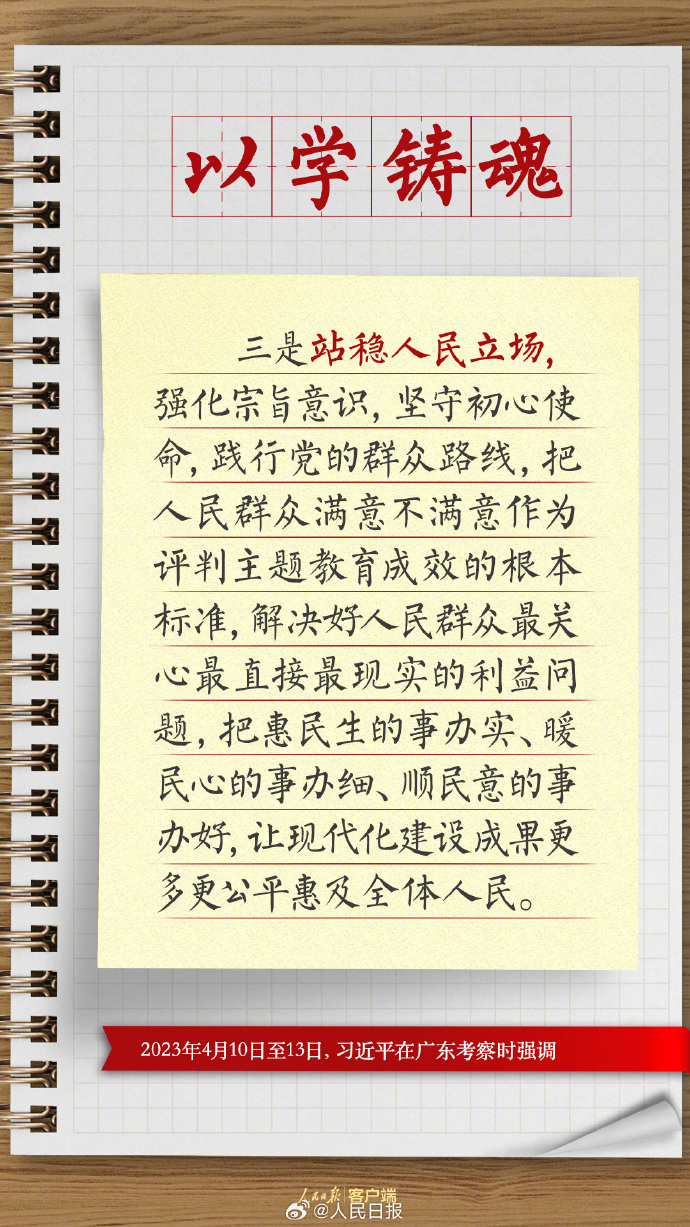 以学铸魂
三是站稳人民立场，
强化宗旨意识，坚守初心使
命，践行党的群众路线，把
人民群众满意不满意作为
评判主题教育成效的根本
标准，解决好人民群众最关
心最直接最现实的利益问
题，把惠民生的事办实、暖
民心的事办细、顺民意的事
办好，让现代化建设成果更
多更公平惠及全体人民。
2023年4月10日至13日，习近平在广东考察时强调
人民日报 客户端
@人民日报